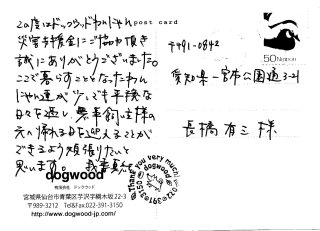 post card
この度はドッグウッドわんにゃん
災害支援金にご協力頂き
誠にありがとうございました。
ここで暮らすこととなったわん
にゃん達が少しでも平穏な
日々を過し、無事飼い主様の
元へ帰れる日を迎えることが
できるよう頑張りたいと
思います。
dogwood
有限会社 ドッグウッド
宮城県仙台市青葉区芋沢字横木坂22-3
〒989-3212 Tel&Fax.022-391-3150
http://www.dogwood-jp.com/
Thank you very much!
dogwood
50 NIPPON
〒491-0842
愛知県一宮市公園通3-21
長橋有三 様